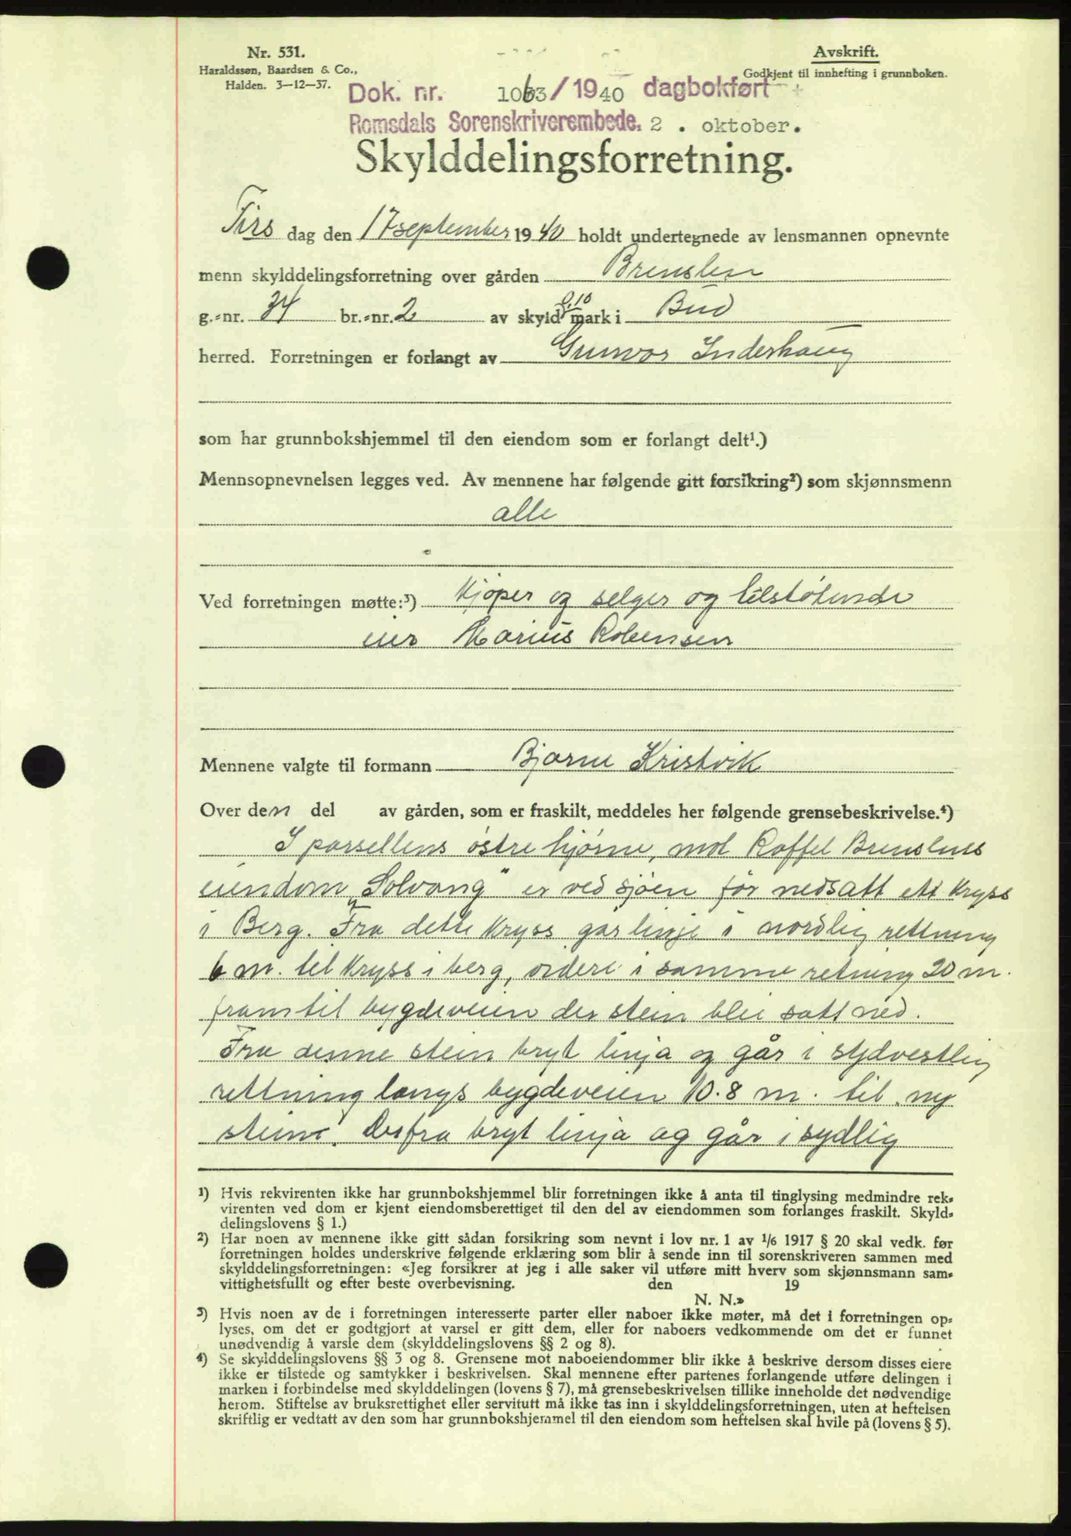 Nr. 531.
Haraldssøn, Baardsen & Co.,
Halden. 3—12—37.
Avskrift.
Godkjent til innhefting i grunnboken.
Dok. nr. 1063/1940 dagbokført
Romsdals Sorenskriverembede. 2. oktober.
Skylddelingsforretning.
Tirs dag den 17 september 1940 holdt undertegnede av lensmannen opnevnte
menn skylddelingsforretning over gården Brenslen
g.-nr. 34 br.-nr. 2 av skyld 0.10 mark i Bud
herred. Forretningen er forlangt av Gunvor Inderhaug
som har grunnbokshjemmel til den eiendom som er forlangt delt¹.)
Mennsopnevnelsen legges ved. Av mennene har følgende gitt forsikring²) som skjønnsmenn
alle
Ved forretningen møtte:³) Kjøper og selger og tilstøtende
eier Marius Robensen
Mennene valgte til formann Bjarne Kristvik
Over den del av gården, som er fraskilt, meddeles her følgende grensebeskrivelse.⁴)
I parsellens østre hjørne, mot Roffel Brenslens
eiendom „Solvang" er ved sjøen før nedsatt ett kryss
i Berg. Fra dette kryss går linje i nordlig rettning
6 m. til kryss i berg, videre i samme retning 20 m.
fram til bygdeveien der stein blei satt ned.
Fra denne stein bryt linja og går i sydvestlig
rettning langs bygdeveien 10.8 m. til ny
stein. Derfra bryt linja og går i sydlig
¹) Hvis rekvirenten ikke har grunnbokshjemmel blir forretningen ikke å anta til tinglysing medmindre rek-
virenten ved dom er kjent eiendomsberettiget til den del av eiendommen som forlanges fraskilt. Skyld-
delingslovens § 1.)
²) Har noen av mennene ikke gitt sådan forsikring som nevnt i lov nr. 1 av ¹/₆ 1917 § 20 skal vedk. før
forretningen holdes underskrive følgende erklæring som blir å sende inn til sorenskriveren sammen med
skylddelingsforretningen: «Jeg forsikrer at jeg i alle saker vil utføre mitt hverv som skjønnsmann sam-
vittighetsfullt og efter beste overbevisning. den 19
N. N.»
³) Hvis noen av de i forretningen interesserte parter eller naboer ikke møter, må det i forretningen op-
lyses, om det er godtgjort at varsel er gitt dem, eller for naboers vedkommende om det er funnet
unødvendig å varsle dem (skylddelingslovens §§ 2 og 8).
⁴) Se skylddelingslovens §§ 3 og 8. Grensene mot naboeiendommer blir ikke å beskrive dersom disses eiere
ikke er tilstede og samtykker i beskrivelsen. Skal mennene efter partenes forlangende utføre delingen i
marken i forbindelse med skylddelingen (lovens § 7), må grensebeskrivelsen tillike inneholde det nødvendige
herom. Stiftelse av bruksrettighet eller servitutt må ikke tas inn i skylddelingsforretningen, uten at heftelsen
skriftlig er vedtatt av den som har grunnbokshjemmel til den eiendom som heftelsen skal hvile på (lovens § 5).